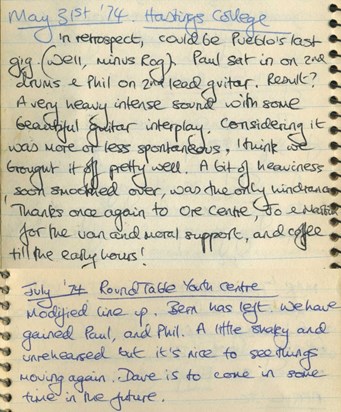 May 31st '74. Hastings College
In retrospect, could be Pueblo's last
gig. (Well, minus Rog). Paul sat in on 2nd
drums & Phil on 2nd lead guitar. Result?
A very heavy intense sound with some
beautiful guitar interplay. Considering it
was more or less spontaneous, I think we
brought it off pretty well. A bit of heaviness
soon smoothed over, was the only hindrance
Thanks once again to Ore Centre, Jo &
for the van and moral support, and coffee
till the early hours!
July '74 Round Table Youth Centre
Modified line up. Bern has left. We have
gained Paul, and Phil. A little shaky and
unrehearsed but it's nice to see things
moving again. Dave is to come in some
time in the future.